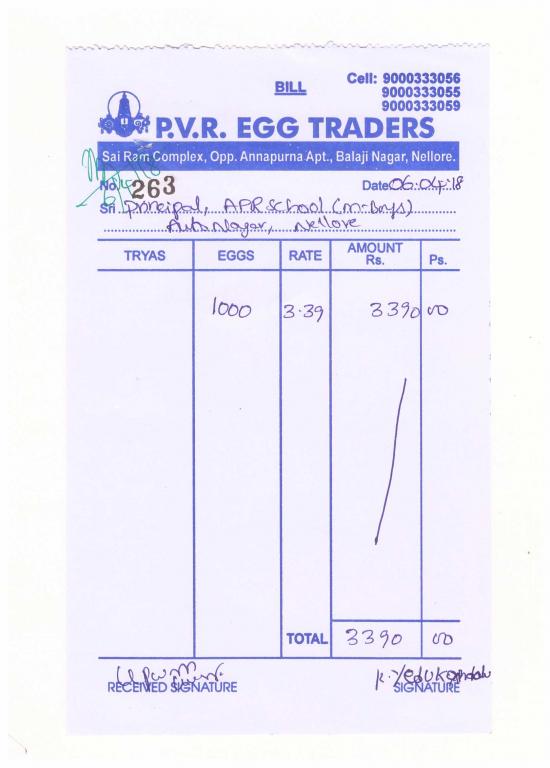 BILL
Cell: 9000333056
9000333055
9000333059
P.V.R. EGG TRADERS
Sai Ram Complex, Opp. Annapurna Apt., Balaji Nagar, Nellore.
No. 263 Date 06.04.18
Sri Principal, APR School (M-Boys)
Auto Nagar, Nellore
TRYAS EGGS RATE AMOUNT Rs. Ps.
1000 3.39 3390 00
TOTAL 3390 00
K. Yedukondalu
RECEIVED SIGNATURE SIGNATURE